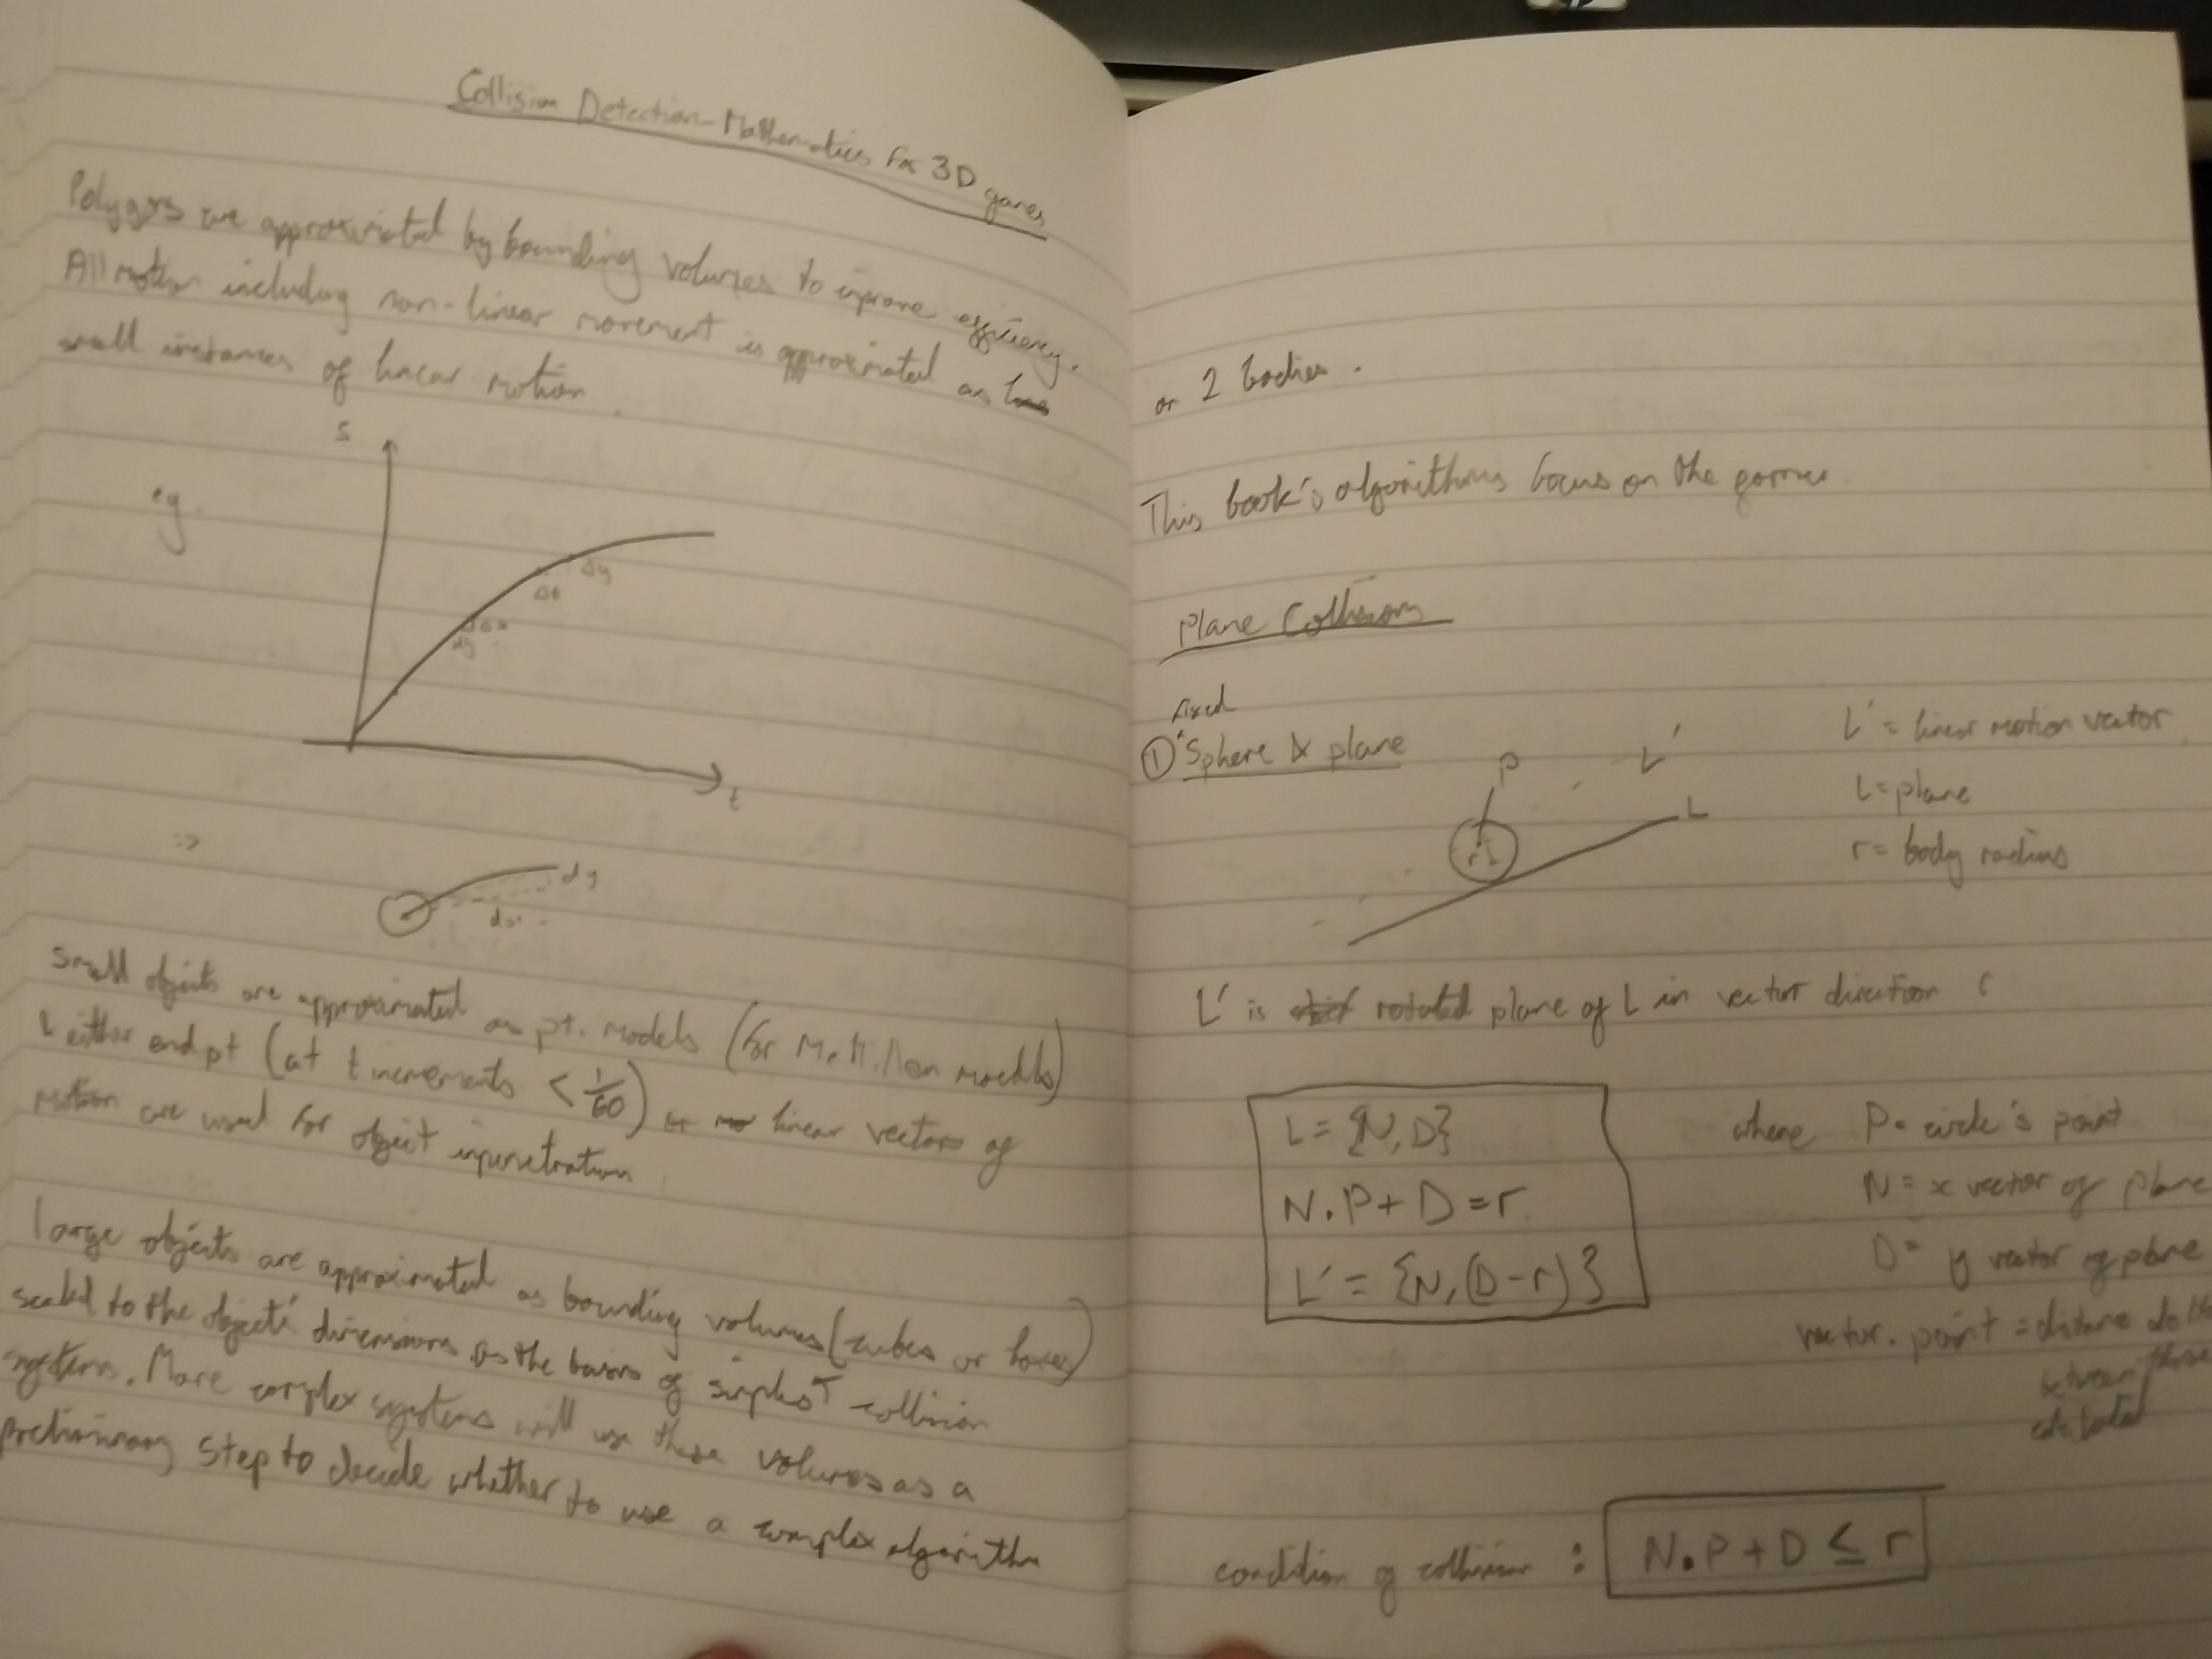 Collision Detection - Mathematics for 3D games
Polygons are approximated by bounding volumes to improve efficiency.
All motion including non-linear movement is approximated as
small instances of linear motion.
s
eg.
Δy
Δt
Δx
dy
t
=>
dy
dx
Small objects are approximated as pt. models (for models)
& either end pt (at t increments < 1/60) or linear vectors of
motion are used for object inpenetration
Large objects are approximated as bounding volumes (cubes or boxes)
scaled to the objects' dimensions as the basis of simplest collision
systems. More complex systems will use these volumes as a
preliminary step to decide whether to use a complex algorithm
on 2 bodies.
This book's algorithms focus on the former.
Plane Collisions
fixed
① Sphere & plane
P
L'
L
r
L' = linear motion vector
L = plane
r = body radius
L' is rotated plane of L in vector direction
L = {N, D}
N.P + D = r
L' = {N, (D-r)}
where P = circle's point
N = x vector of plane
D = y vector of plane
vector . point = distance
between these
condition of collision : N.P + D ≤ r